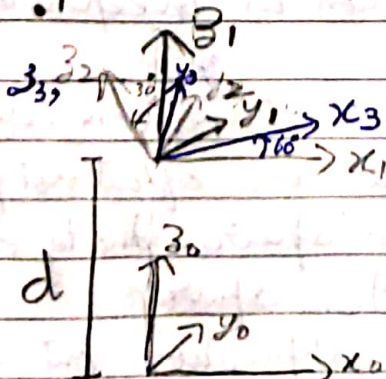 z₁
z₃, z₂ 30° y₃ y₂
y₁ x₃
60° x₁
z₀
d
y₀
x₀